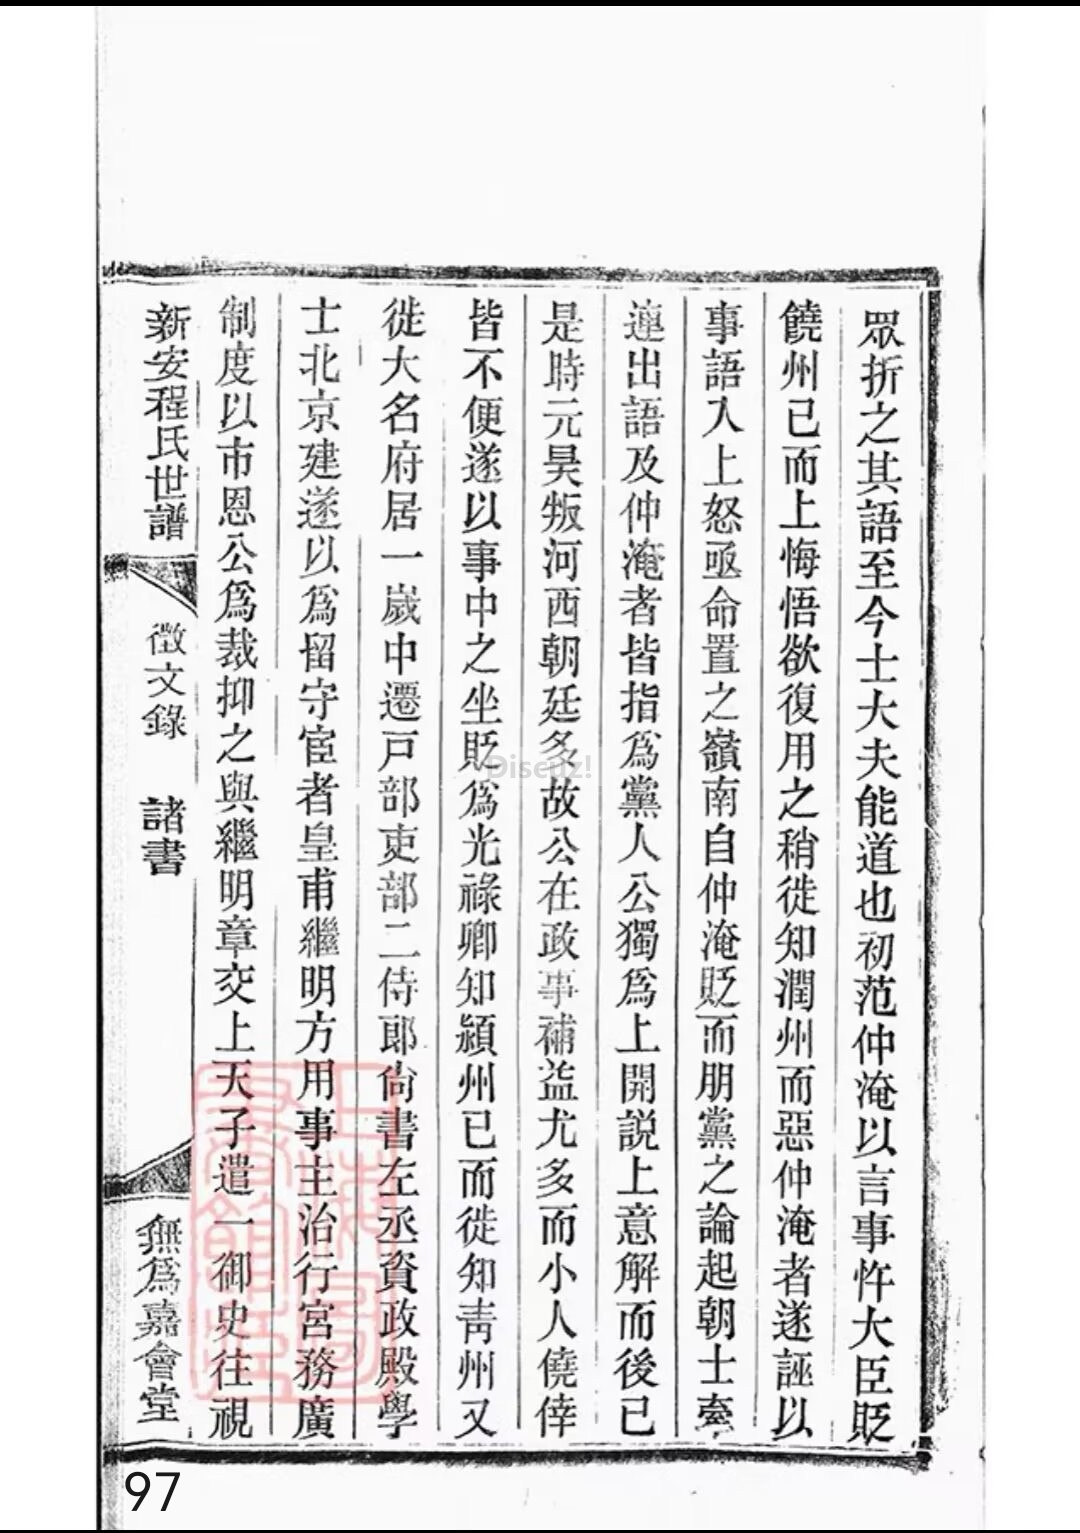 眾折之其語至今士大夫能道也初范仲淹以言事忤大臣貶
饒州已而上悔悟欲復用之稍徙知潤州而惡仲淹者遂誣以
事語入上怒亟命置之嶺南自仲淹貶而朋黨之論起朝士牽
連出語及仲淹者皆指為黨人公獨為上開說上意解而後已
是時元昊叛河西朝廷多故公在政事補益尤多而小人僥倖
皆不便遂以事中之坐貶為光祿卿知潁州已而徙知青州又
徙大名府居一歲中遷戸部吏部二侍郎尚書左丞資政殿學
士北京建遂以為留守宦者皇甫繼明方用事主治行宮務廣
制度以市恩公為裁抑之與繼明章交上天子遣一御史往視
新安程氏世譜 徴文錄 諸書 無為嘉會堂
上海圖書館藏
Discuz!
97